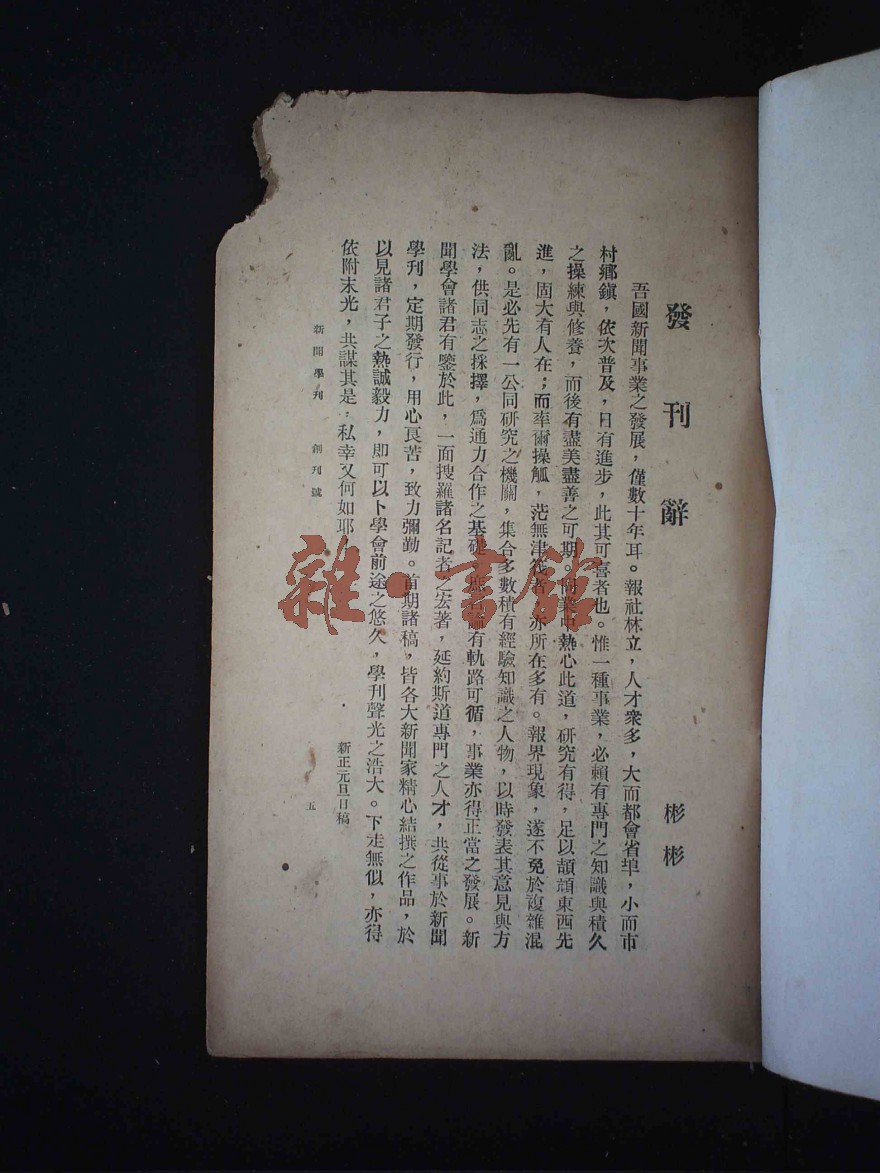 發刊辭
彬彬
吾國新聞事業之發展，僅數十年耳。報社林立，人才衆多，大而都會省埠，小而市
村鄉鎮，依次普及，日有進步，此其可喜者也。惟一種事業，必賴有專門之知識與積久
之操練與修養，而後有盡美盡善之可期。同業中熱心此道，研究有得，足以頡頏東西先
進，固大有人在；而率爾操觚，茫無津筏者，亦所在多有。報界現象，遂不免於複雜混
亂。是必先有一公同研究之機關，集合多數積有經驗知識之人物，以時發表其意見與方
法，供同志之採擇，爲通力合作之基礎，有軌路可循，事業亦得正當之發展。新
聞學會諸君有鑒於此，一面搜羅諸名記者之宏著，延約斯道專門之人才，共從事於新聞
學刊，定期發行，用心良苦，致力彌勤。首期諸稿，皆各大新聞家精心結撰之作品，於
以見諸君子之熱誠毅力，即可以卜學會前途之悠久，學刊聲光之浩大。下走無似，亦得
依附末光，共謀其是，私幸又何如耶
新正元旦日稿
新聞學刊 創刊號
五
雜·書館